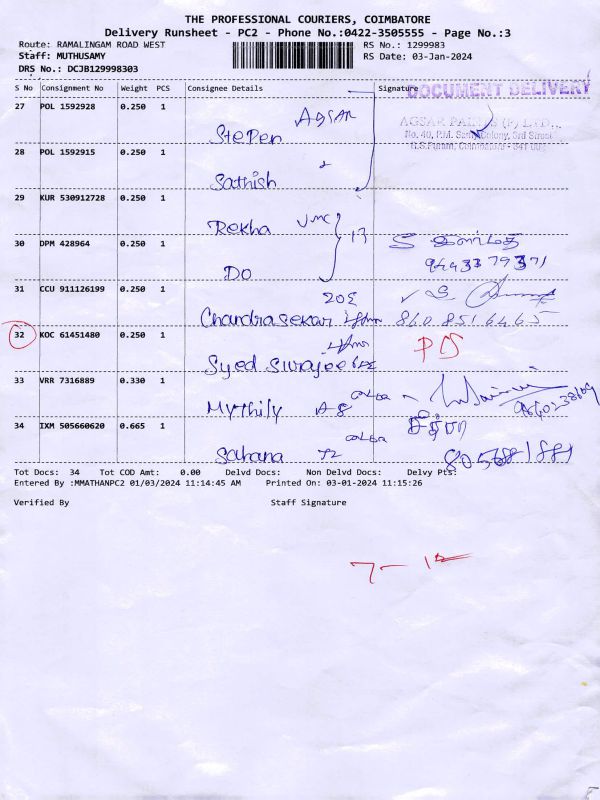 THE PROFESSIONAL COURIERS, COIMBATORE
Delivery Runsheet - PC2 - Phone No.:0422-3505555 - Page No.:3
Route: RAMALINGAM ROAD WEST RS No.: 1299983
Staff: MUTHUSAMY RS Date: 03-Jan-2024
DRS No.: DCJB129998303
S No Consignment No Weight PCS Consignee Details Signature
DOCUMENT DELIVERY
27 POL 1592928 0.250 1 AGSAR
AGSAR PAINTS (P) LTD.,
Stepen No. 40, P.M. Samy Colony, 3rd Street
R.S.Puram, Coimbatore - 641 002
28 POL 1592915 0.250 1
Sathish
29 KUR 530912728 0.250 1
Rekha VMC
30 DPM 428964 0.250 1 17
Do
31 CCU 911126199 0.250 1 202
Chandrasekar 8608516465
32 KOC 61451480 0.250 1
Syed Sirajee
33 VRR 7316889 0.330 1
Mythily A8
34 IXM 505660620 0.665 1
Sahana 72
Tot Docs: 34 Tot COD Amt: 0.00 Delvd Docs: Non Delvd Docs: Delvy Pts:
Entered By :MMATHANPC2 01/03/2024 11:14:45 AM Printed On: 03-01-2024 11:15:26
Verified By Staff Signature